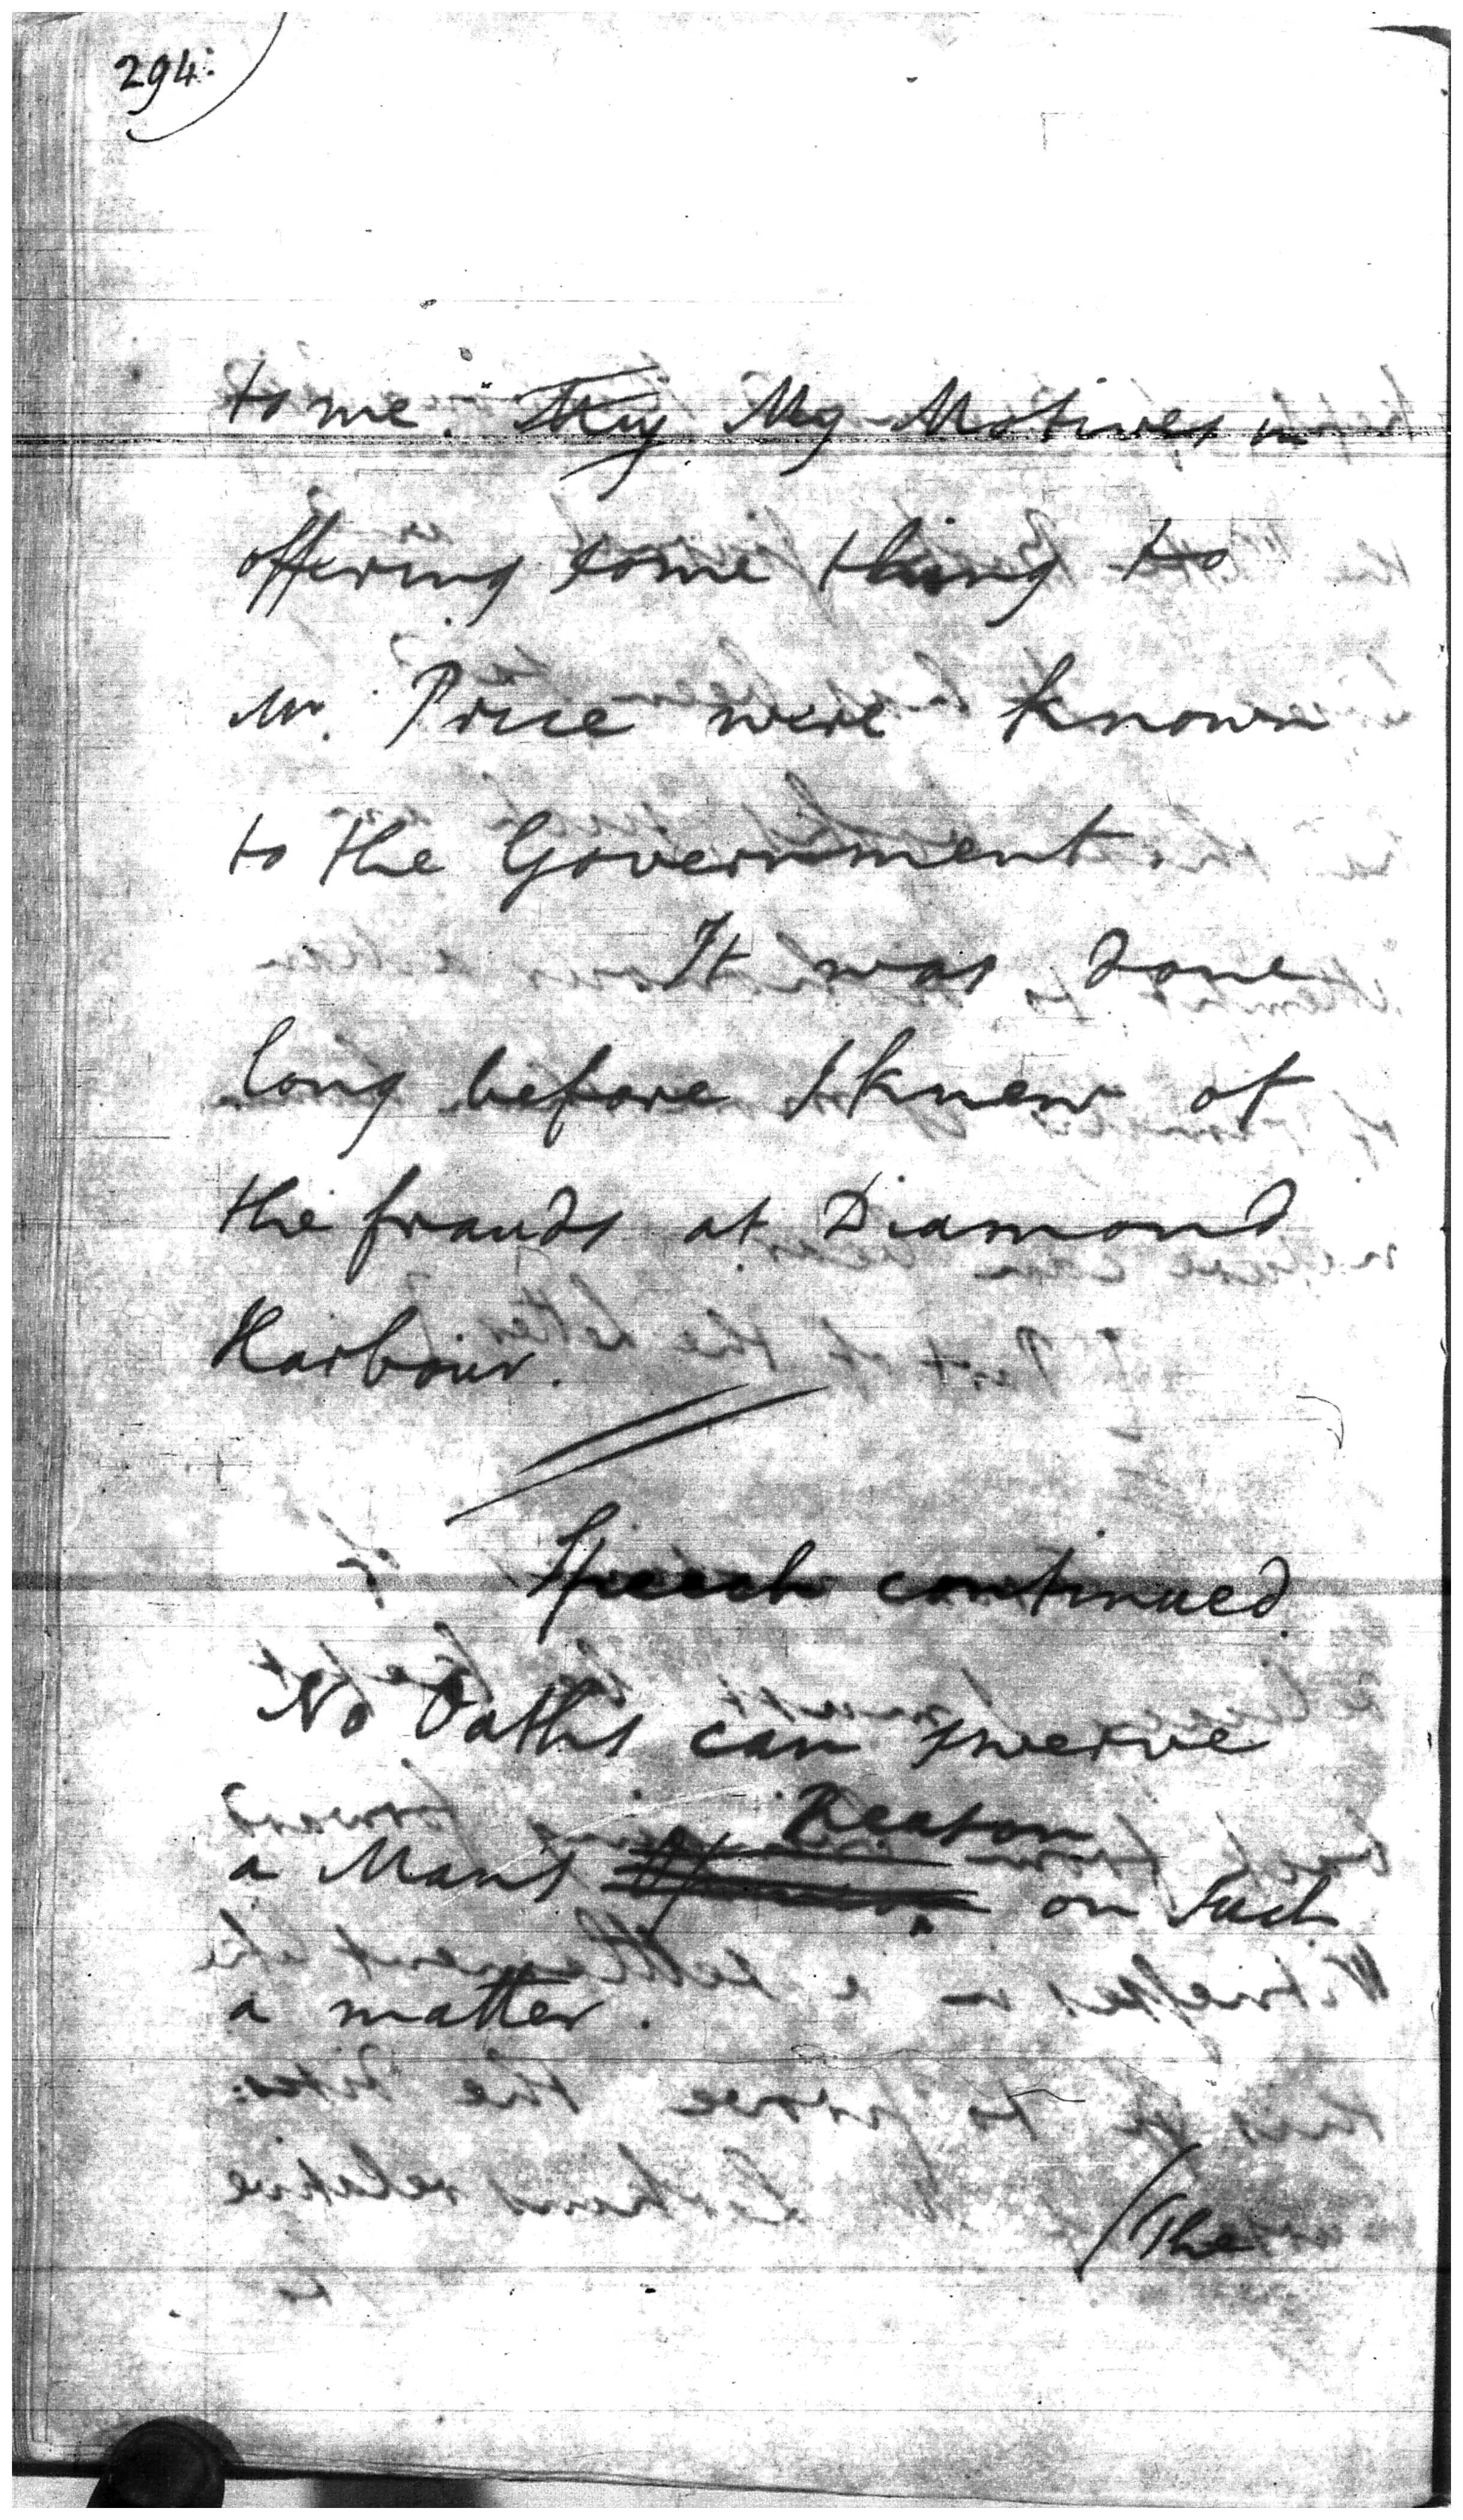 294.
to me. They My Motives in
offering some thing to
Mr. Price were known
to the Government.
It was done
long before I knew of
the frauds at Diamond
Harbour.
Speech continued
No Oaths can swerve
Reason
a Man's on such
a matter.
(The